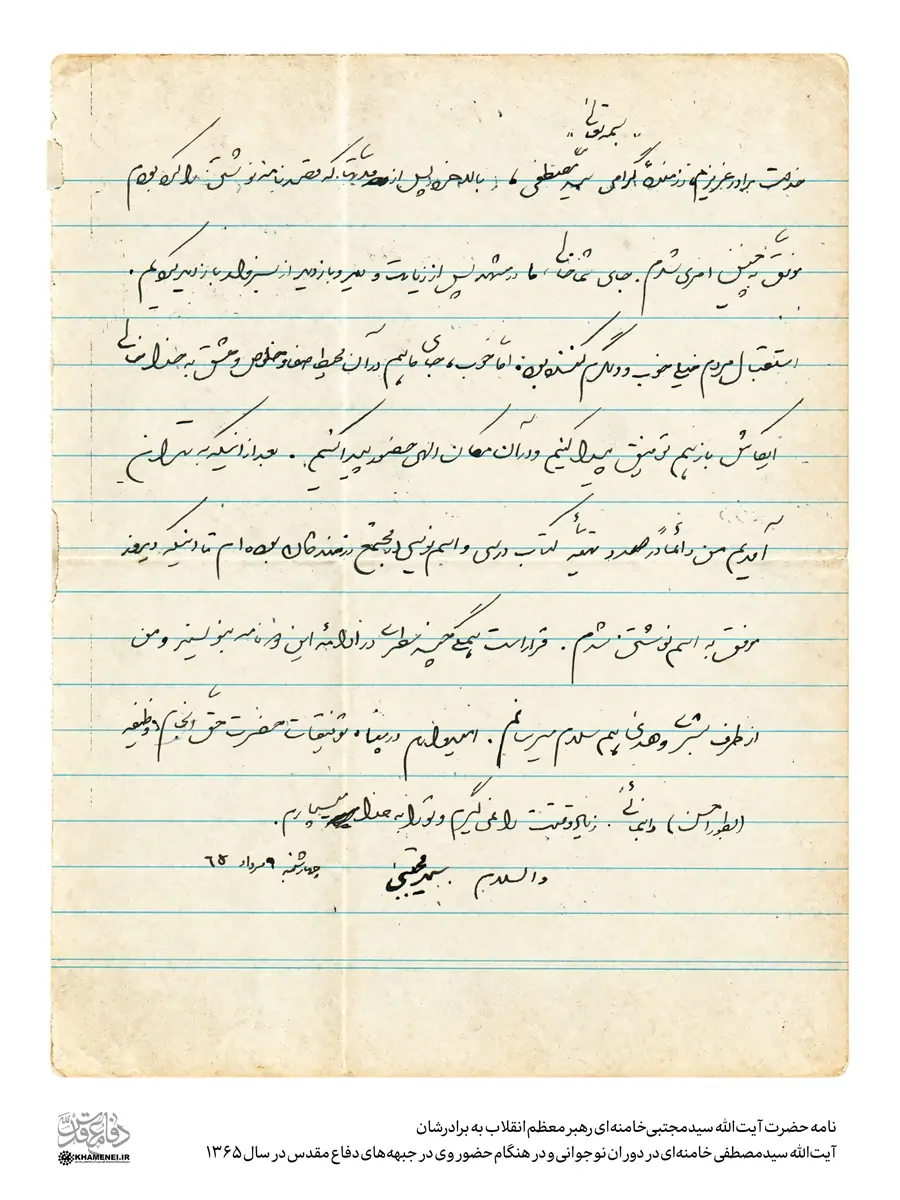 بسمه تعالی
خدمت برادر عزیزم، رزمندهٔ گرامی سید مصطفی، بالاخره پس از مدتها که قصد نامه نوشتن را کرده بودم
موفق به چنین امری شدم. جای شما خالی، ما در مشهد پس از زیارت و دید و بازدید از سر فلد بازدید کردیم.
استقبال مردم خیلی خوب و دلگرم کننده بود. اما خوب، جای ما هم در آن محیط صفا و خلوص و عشق به خدا خالی
ایکاش باز هم توفیق پیدا کنیم و در آن مکان الهی حضور پیدا کنیم. بعد از اینکه به تهران
آمدیم من دائماً در صدد تهیهٔ کتاب درسی و اسم نویسی در مجتمع رزمندگان بوده ام تا اینکه دیروز
موفق به اسم نوشتن شدم. قرار است همگی در ادامهٔ این نامه بنویسند و من
از طرف بشری و هدی هم سلام میرسانم. امیدوارم در پناه توفیقات حضرت حق انجام وظیفه
(بطور احسن) بنمائی. زیاد وقتت را نمی گیرم و تو را به خدا میسپارم.
والسلام سید مجتبی چهارشنبه ۹ مرداد ۶۵
نامه حضرت آیت‌الله سیدمجتبی خامنه‌ای رهبر معظم انقلاب به برادرشان
آیت‌الله سیدمصطفی خامنه‌ای در دوران نوجوانی و در هنگام حضور وی در جبهه‌های دفاع مقدس در سال ۱۳۶۵
دفاع مقدس
KHAMENEI.IR